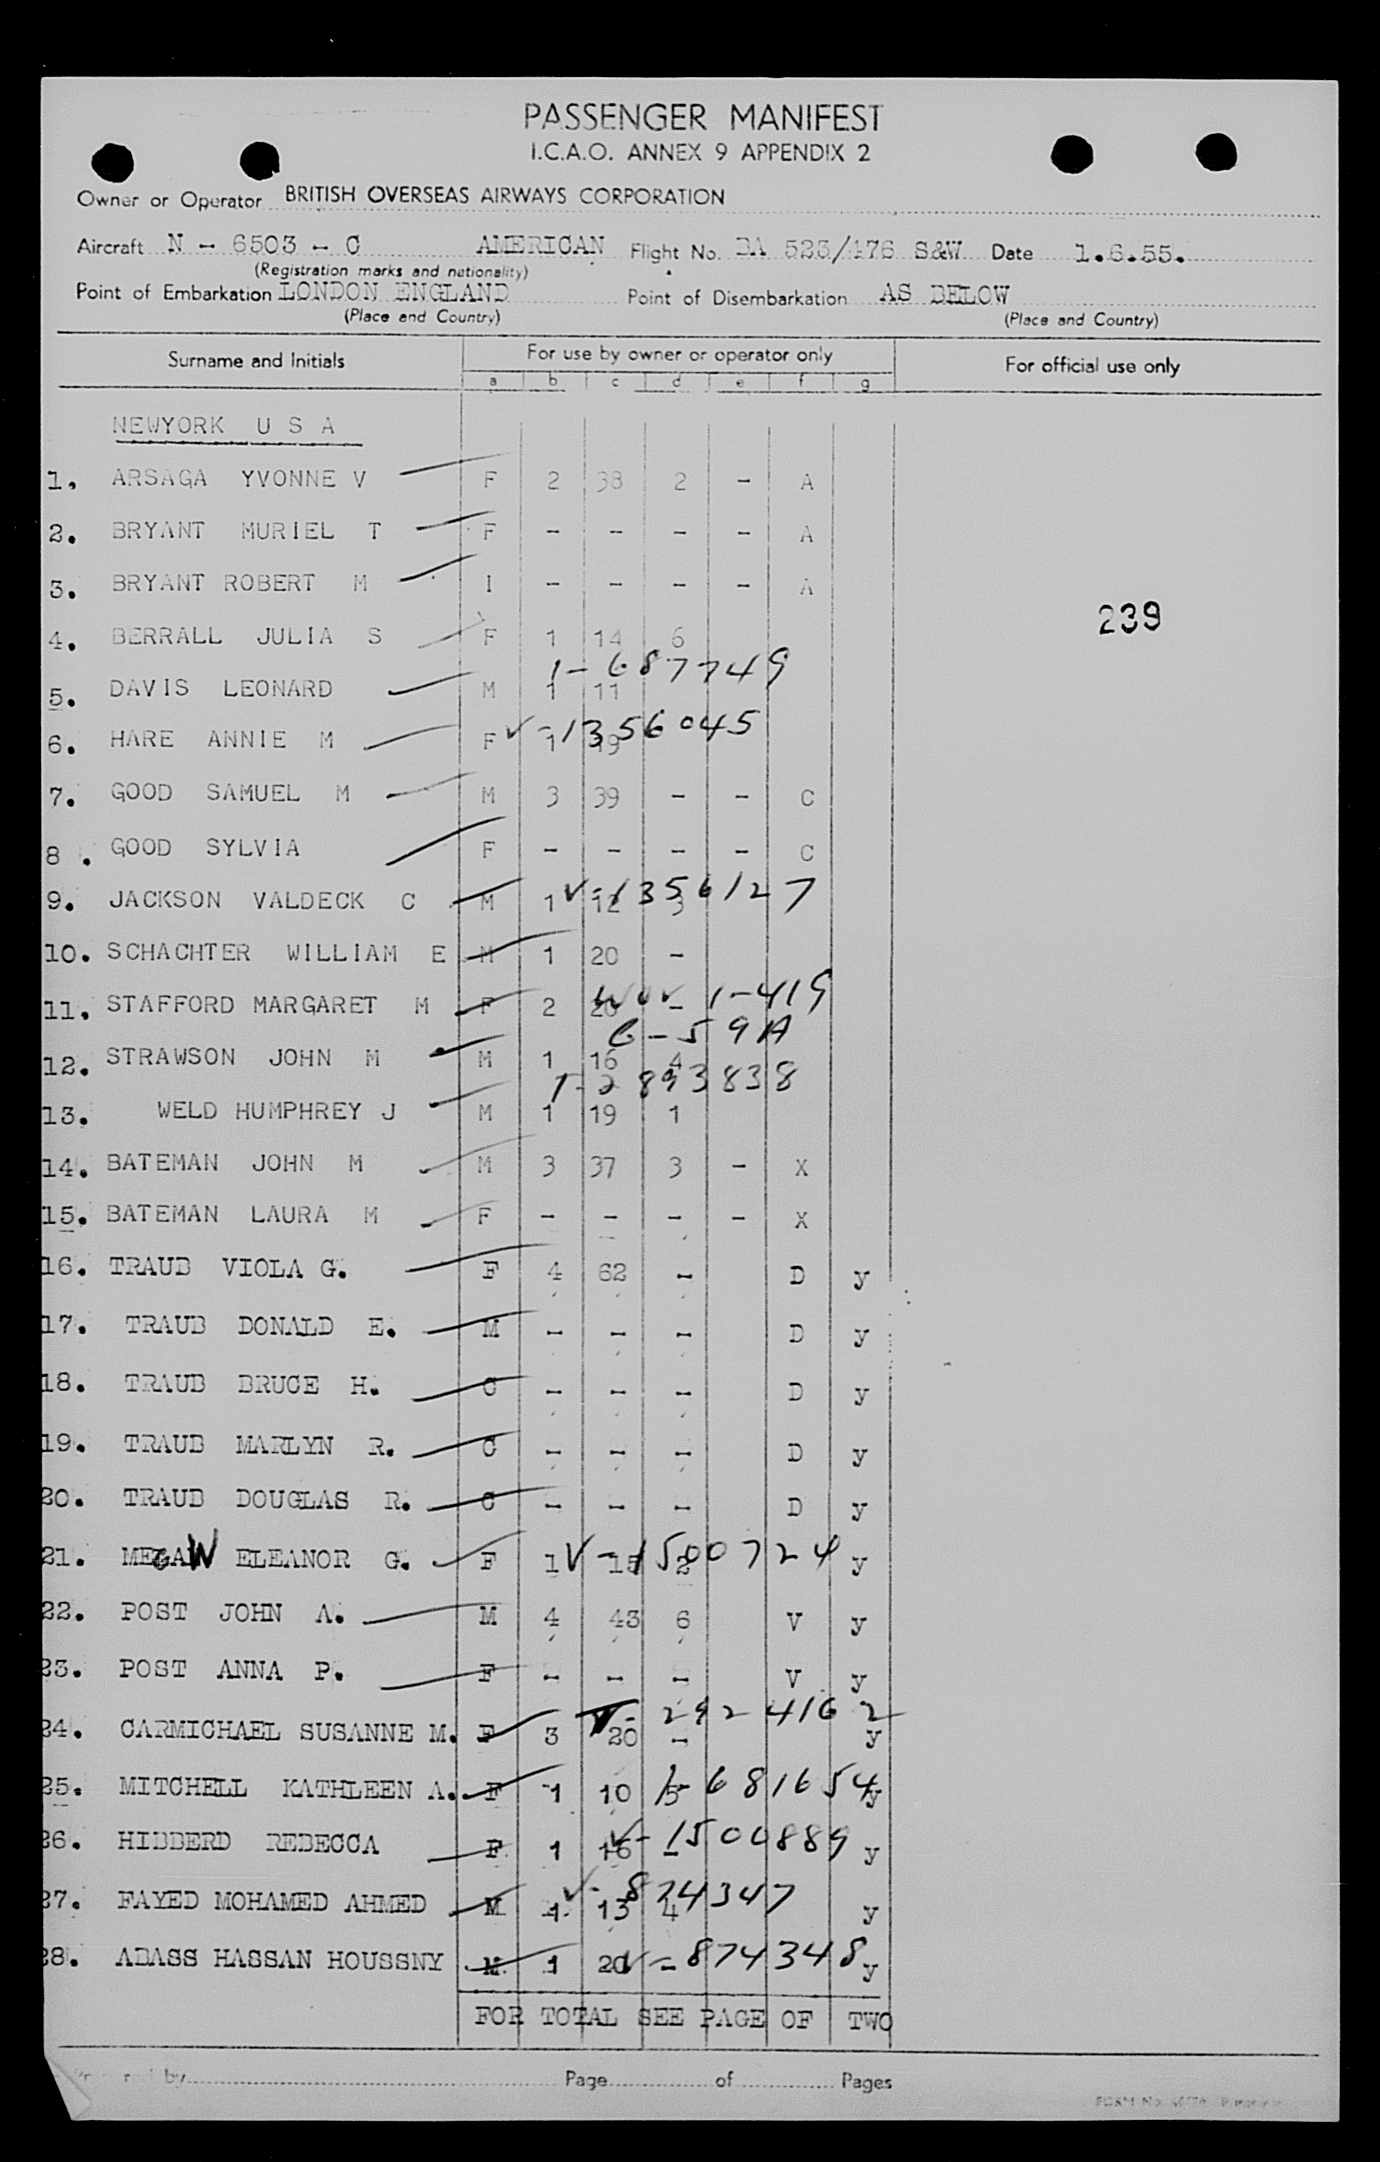 PASSENGER MANIFEST
I.C.A.O. ANNEX 9 APPENDIX 2
Owner or Operator BRITISH OVERSEAS AIRWAYS CORPORATION
Aircraft N - 6503 - C AMERICAN Flight No. BA 523/476 S&W Date 1.6.55.
(Registration marks and nationality)
Point of Embarkation LONDON ENGLAND Point of Disembarkation AS BELOW
(Place and Country) (Place and Country)
Surname and Initials For use by owner or operator only For official use only
a b c d e f g
NEWYORK U S A
1. ARSAGA YVONNE V F 2 38 2 - A
2. BRYANT MURIEL T F - - - - A
3. BRYANT ROBERT M I - - - - A
239
4. BERRALL JULIA S F 1 14 6
1-687749
5. DAVIS LEONARD M 1 11
V-1356045
6. HARE ANNIE M F 1 19
7. GOOD SAMUEL M M 3 39 - - C
8. GOOD SYLVIA F - - - - C
V-1356127
9. JACKSON VALDECK C M 1 12 3
10. SCHACHTER WILLIAM E M 1 20 -
1-419
11. STAFFORD MARGARET M F 2 26 -
C-59A
12. STRAWSON JOHN M M 1 16 4
T-2893838
13. WELD HUMPHREY J M 1 19 1
14. BATEMAN JOHN M M 3 37 3 - X
15. BATEMAN LAURA M F - - - - X
16. TRAUB VIOLA G. F 4 62 - D y
17. TRAUB DONALD E. M - - - D y
18. TRAUB BRUCE H. C - - - D y
19. TRAUB MARLYN R. C - - - D y
20. TRAUB DOUGLAS R. C - - - D y
V-1500724
21. MEGAW ELEANOR G. F 1 15 2 y
22. POST JOHN A. M 4 43 6 V y
23. POST ANNA P. F - - - V y
V-2924162
24. CARMICHAEL SUSANNE M. F 3 20 - y
1-681654
25. MITCHELL KATHLEEN A. F 1 10 5 y
V-1500889
26. HIBBERD REBECCA F 1 16 - y
V-874347
27. FAYED MOHAMED AHMED M 1 13 4 y
V-874348
28. ABASS HASSAN HOUSSNY M 1 20 - y
FOR TOTAL SEE PAGE OF TWO
by Page of Pages